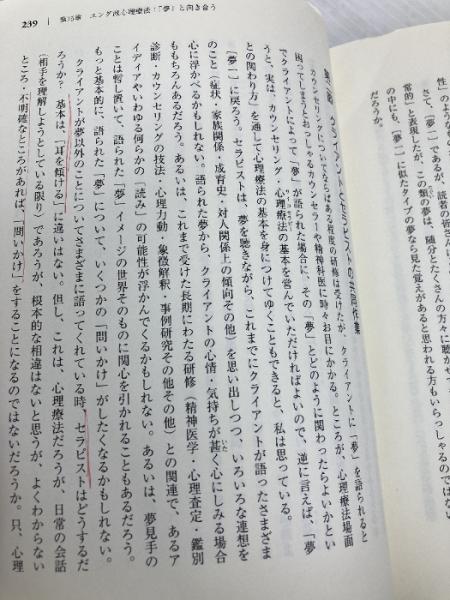 239　第15章　ユング派心理療法：「夢」と向き合う
性」のような
さて、〔夢二〕であるが、読者の皆さんは
常的」と表現したが、この類の夢は、随分とたくさんの方々に聴かせて
の中にも、〔夢二〕に似たタイプの夢なら見た覚えがあると思われる方もいらっしゃるのでは
だろうか。
クライアントとセラピストの共同作業
カウンセリングについてならばある程度の研修は受けたが、クライアントに「夢」を語られると
困ってしまうとおっしゃるカウンセラーや精神科医に時々お目にかかる。ところが、心理療法場面
でクライアントによって「夢」が語られた場合に、その「夢」とどのように関わったらよいかとい
うと、実は、カウンセリング・心理療法の基本を営んでいただければよいので、逆に言えば、「夢
との関わり方」を通して心理療法の基本を身につけてゆくこともできると、私は思っている。
〔夢一〕に戻ろう。セラピストは、夢を聴きながら、これまでにクライアントが語ったさまざま
のこと（症状・家族関係・成育史・対人関係上の傾向その他）を思い出しつつ、いろいろな連想を
心に浮かべるかもしれない。語られた夢から、クライアントの心情・気持ちが甚く心にしみる場合
ももちろんあるだろう。あるいは、これまで受けた長期にわたる研修（精神医学・心理査定・鑑別
診断・カウンセリングの技法・心理力動・象徴解釈・事例研究その他その他）との関連で、あるア
イディアやいわゆる何らかの「読み」の可能性が浮かんでくるかもしれない。あるいは、夢見手の
ことは暫し置いて、語られた「夢」イメージの世界そのものに関心を引かれることもあるだろう。
もっと基本的に、語られた「夢」について、いくつかの「問いかけ」がしたくなるかもしれない。
クライアントが夢以外のことについてさまざまに語ってくれている時、セラピストはどうするだ
ろうか？　基本は、「耳を傾ける」に違いはない。但し、これは、心理療法だろうが、日常の会話
（相手を理解しようとしている限り）であろうが、根本的な相違はないと思うが、よくわからない
ところ・不明確なところがあれば、「問いかけ」をすることになるのではないだろうか。只、心理